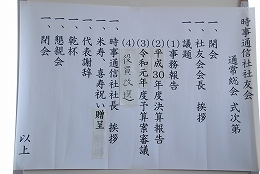 時事通信社社友会
通常総会 式次第
一、開会
一、社友会会長 挨拶
一、議題
(1)事務報告
(2)平成30年度決算報告
(3)令和元年度予算案審議
(4)役員改選
一、時事通信社社長 挨拶
一、米寿、喜寿祝い贈呈
一、代表謝辞
一、乾杯
一、懇親会
一、閉会
以上